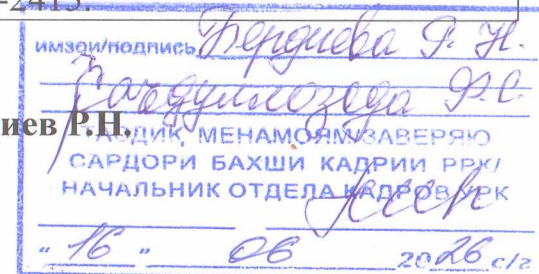 -2415.
имзои/подпись Бердиева Ф. Н.
Саъдуллозода Ф.С.
иев Р.Н.
ТАСДИҚ МЕНАМОЯМ/ЗАВЕРЯЮ
САРДОРИ БАХШИ КАДРИИ РРК/
НАЧАЛЬНИК ОТДЕЛА КАДРОВ УРК
" 16 " 06 2026 с/г